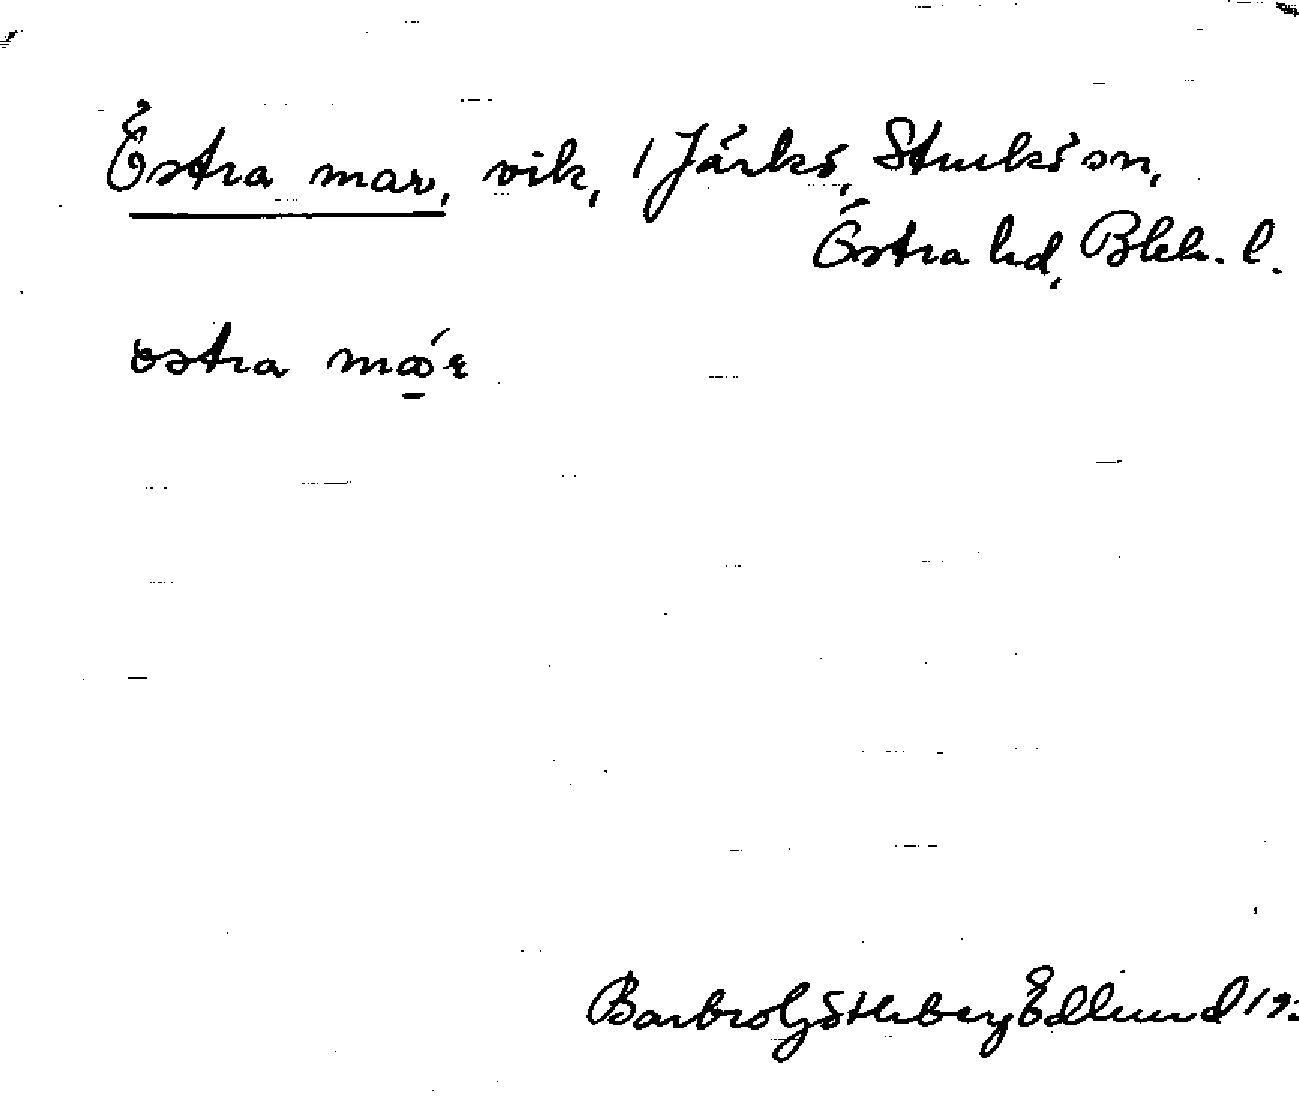 Östra mar, vik, Järkö, Sturkö sn,
Östra hd, Blek. l.
östra mar
Barbro Götherberg Edlund 19